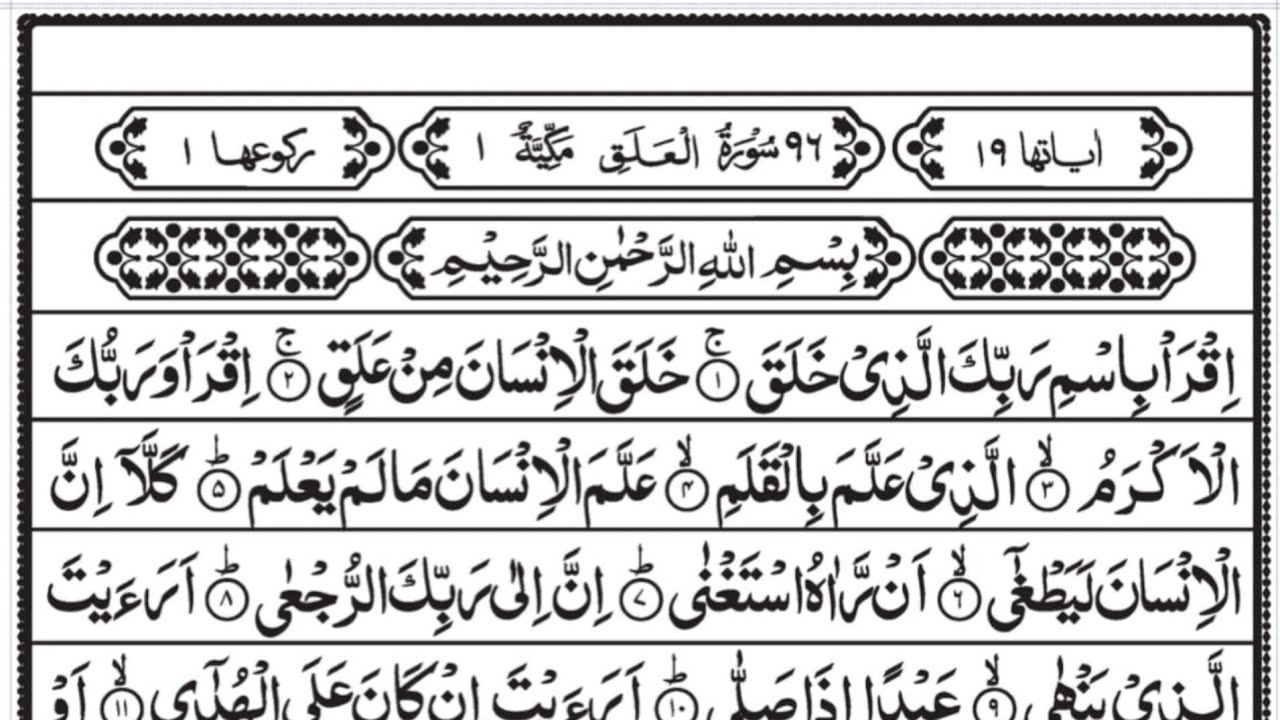 اٰیاتها ۱۹ ۹۶ سُوۡرَۃُ الۡعَلَقِ مَکِّیَّۃٌ ۱ رکوعها ۱
بِسۡمِ اللهِ الرَّحۡمٰنِ الرَّحِیۡمِ
اِقۡرَاۡ بِاسۡمِ رَبِّکَ الَّذِیۡ خَلَقَ ۚ﴿۱﴾ خَلَقَ الۡاِنۡسَانَ مِنۡ عَلَقٍ ۚ﴿۲﴾ اِقۡرَاۡ وَ رَبُّکَ
الۡاَکۡرَمُ ۙ﴿۳﴾ الَّذِیۡ عَلَّمَ بِالۡقَلَمِ ۙ﴿۴﴾ عَلَّمَ الۡاِنۡسَانَ مَا لَمۡ یَعۡلَمۡ ؕ﴿۵﴾ کَلَّاۤ اِنَّ
الۡاِنۡسَانَ لَیَطۡغٰۤی ۙ﴿۶﴾ اَنۡ رَّاٰہُ اسۡتَغۡنٰی ؕ﴿۷﴾ اِنَّ اِلٰی رَبِّکَ الرُّجۡعٰی ؕ﴿۸﴾ اَرَءَیۡتَ
الَّذِیۡ یَنۡهٰی ۙ﴿۹﴾ عَبۡدًا اِذَا صَلّٰی ؕ﴿۱۰﴾ اَرَءَیۡتَ اِنۡ کَانَ عَلَی الۡهُدٰۤی ۙ﴿۱۱﴾ اَوۡ